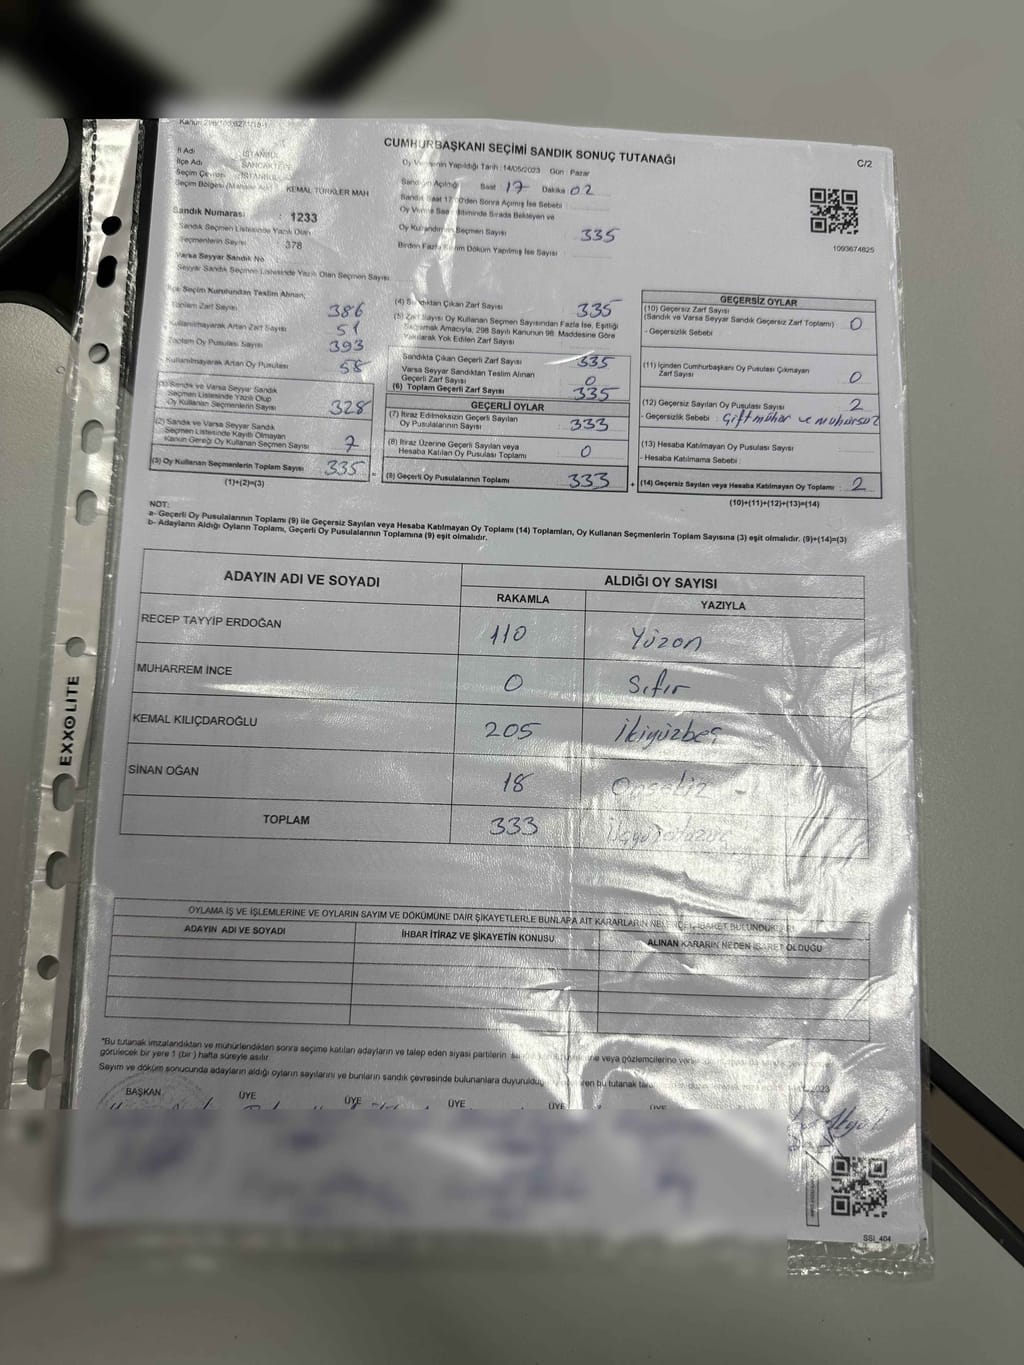 CUMHURBAŞKANI SEÇİMİ SANDIK SONUÇ TUTANAĞI
C/2
İl Adı : İSTANBUL
İlçe Adı : SANCAKTEPE
Seçim Çevresi : İSTANBUL
Seçim Bölgesi (Mahalle Adı) : KEMAL TÜRKLER MAH
Sandık Numarası : 1233
Sandık Seçmen Listesinde Yazılı Olan
Seçmenlerin Sayısı : 378
Varsa Seyyar Sandık No
Seyyar Sandık Seçmen Listesinde Yazılı Olan Seçmen Sayısı
Oy Verme Yapıldığı Tarih : 14/05/2023 Gün : Pazar
Sandığın Açıldığı Saat 17 Dakika 02
Sandık Saat 17:00'den Sonra Açılmış İse Sebebi
Oy Verme Saati Bitiminde Sırada Bekleyen ve
Oy Kullandırılan Seçmen Sayısı : 335
Birden Fazla Döküm Yapılmış İse Sayısı
1093674625
İlçe Seçim Kurulundan Teslim Alınan;
Toplam Zarf Sayısı 386
Kullanılmayarak Artan Zarf Sayısı 51
Toplam Oy Pusulası Sayısı 393
Kullanılmayarak Artan Oy Pusulası 58
(1) Sandık ve Varsa Seyyar Sandık
Seçmen Listesinde Yazılı Olup
Oy Kullanan Seçmenlerin Sayısı 328
(2) Sandık ve Varsa Seyyar Sandık
Seçmen Listesinde Kayıtlı Olmayan
Kanun Gereği Oy Kullanan Seçmen Sayısı 7
(3) Oy Kullanan Seçmenlerin Toplam Sayısı 335
(1)+(2)=(3)
(4) Sandıktan Çıkan Zarf Sayısı 335
(5) Zarf Sayısı Oy Kullanan Seçmen Sayısından Fazla İse, Eşitliği
Sağlamak Amacıyla, 298 Sayılı Kanunun 98. Maddesine Göre
Yakılarak Yok Edilen Zarf Sayısı
Sandıkta Çıkan Geçerli Zarf Sayısı 335
Varsa Seyyar Sandıktan Teslim Alınan
Geçerli Zarf Sayısı 0
(6) Toplam Geçerli Zarf Sayısı 335
GEÇERLİ OYLAR
(7) İtiraz Edilmeksizin Geçerli Sayılan
Oy Pusulalarının Sayısı 333
(8) İtiraz Üzerine Geçerli Sayılan veya
Hesaba Katılan Oy Pusulası Toplamı 0
(9) Geçerli Oy Pusulalarının Toplamı 333
GEÇERSİZ OYLAR
(10) Geçersiz Zarf Sayısı
(Sandık ve Varsa Seyyar Sandık Geçersiz Zarf Toplamı) 0
- Geçersizlik Sebebi :
(11) İçinden Cumhurbaşkanı Oy Pusulası Çıkmayan
Zarf Sayısı 0
(12) Geçersiz Sayılan Oy Pusulası Sayısı 2
- Geçersizlik Sebebi : Çift mühür ve mühürsüz
(13) Hesaba Katılmayan Oy Pusulası Sayısı
- Hesaba Katılmama Sebebi :
(14) Geçersiz Sayılan veya Hesaba Katılmayan Oy Toplamı 2
(10)+(11)+(12)+(13)=(14)
NOT:
a- Geçerli Oy Pusulalarının Toplamı (9) ile Geçersiz Sayılan veya Hesaba Katılmayan Oy Toplamı (14) Toplamları, Oy Kullanan Seçmenlerin Toplam Sayısına (3) eşit olmalıdır. (9)+(14)=(3)
b- Adayların Aldığı Oyların Toplamı, Geçerli Oy Pusulalarının Toplamına (9) eşit olmalıdır.
ADAYIN ADI VE SOYADI ALDIĞI OY SAYISI
RAKAMLA YAZIYLA
RECEP TAYYİP ERDOĞAN 110 Yüzon
MUHARREM İNCE 0 Sıfır
KEMAL KILIÇDAROĞLU 205 İkiyüzbeş
SİNAN OĞAN 18 Onsekiz
TOPLAM 333
OYLAMA İŞ VE İŞLEMLERİNE VE OYLARIN SAYIM VE DÖKÜMÜNE DAİR ŞİKAYETLERLE BUNLARA AİT KARARLARIN NEDEN İBARET BULUNDUKLARI
ADAYIN ADI VE SOYADI İHBAR İTİRAZ VE ŞİKAYETİN KONUSU ALINAN KARARIN NEDEN İBARET OLDUĞU
*Bu tutanak imzalandıktan ve mühürlendikten sonra seçime katılan adayların ve talep eden siyasi partilerin veya gözlemcilerine
görülecek bir yere 1 (bir) hafta süreyle asılır.
Sayım ve döküm sonucunda adayların aldığı oyların sayılarını ve bunların sandık çevresinde bulunanlara duyurulduğu bu tutanak
BAŞKAN ÜYE ÜYE ÜYE ÜYE ÜYE
EXXOLITE
SSI_404